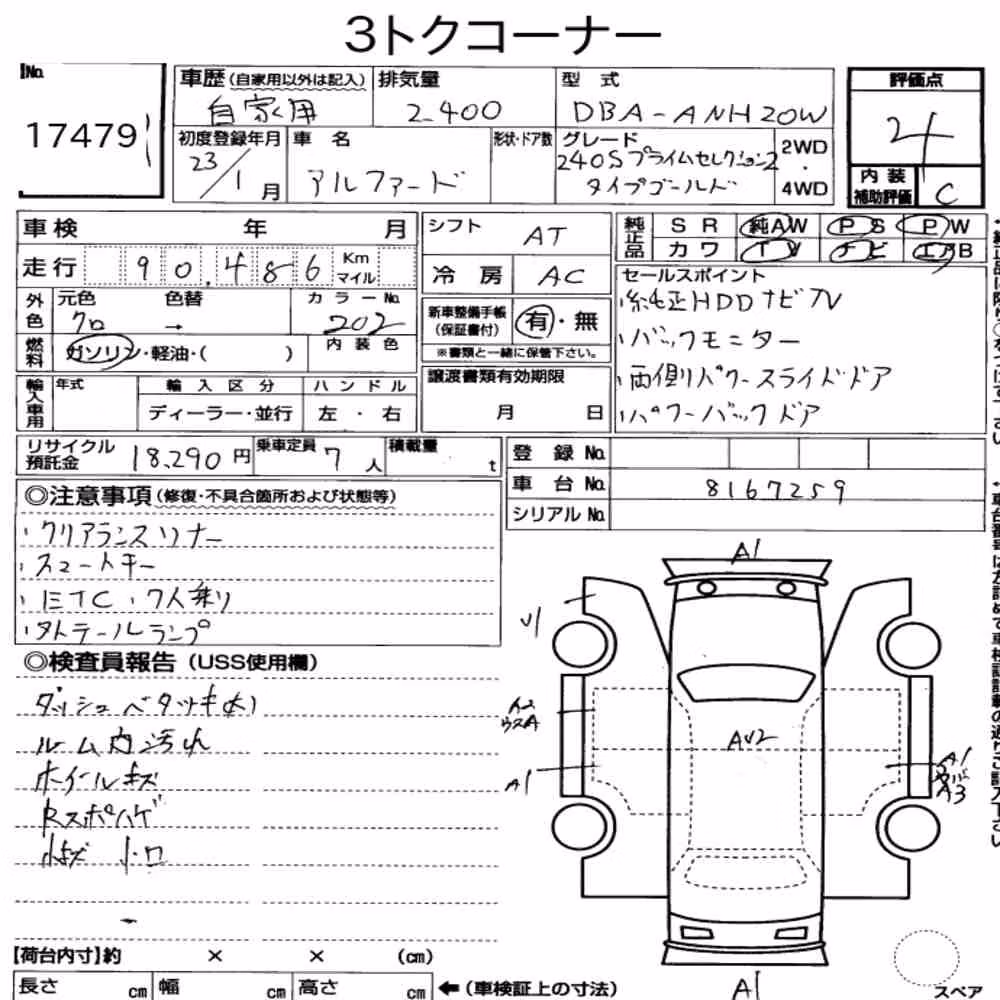 3トクコーナー
No.
17479
車歴(自家用以外は記入)
自家用
排気量
2400
型 式
DBA-ANH20W
評価点
4
初度登録年月
23/1月
車 名
アルファード
形状・ドア数
グレード
240Sプライムセレクション2
タイプゴールド
2WD
・
4WD
内装
補助評価
C
車検 年 月
シフト
AT
純正品
SR 純AW PS PW
カワ TV ナビ エアB
走行 90,486 Km マイル
冷房
AC
セールスポイント
・純正HDDナビTV
・バックモニター
・両側パワースライドドア
・パワーバックドア
外色
元色
クロ
色替
→
カラーNo.
202
新車整備手帳
(保証書付)
有・無
※書類と一緒に保管下さい。
燃料
ガソリン・軽油・( )
内装色
輸入車用
年式
輸入区分
ディーラー・並行
ハンドル
左・右
譲渡書類有効期限
月 日
リサイクル
預託金
18,290円
乗車定員
7人
積載量
t
登録No.
車台No. 8167259
シリアルNo.
◎注意事項(修復・不具合箇所および状態等)
・クリアランスソナー
・スマートキー
・ETC・7人乗り
・外テールランプ
◎検査員報告(USS使用欄)
ダッシュベタツキ(大)
ルーム内汚れ
ホイールキズ
Rスポハゲ
小キズ 小凹
A1
A2
A1
AU2
A1
A3
A1
【荷台内寸】約 × × (cm)
長さ cm 幅 cm 高さ cm
←(車検証上の寸法)
スペア
車台番号は左詰めで車検証記載の通りご記入下さい